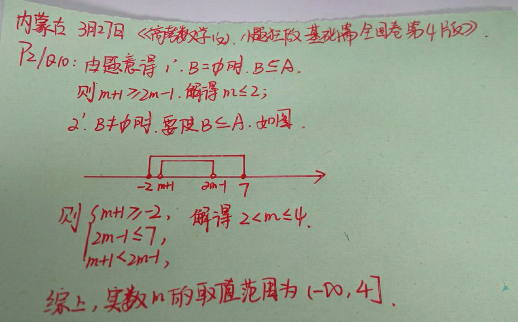 内蒙古 3月27日 《高考数学(文). 小题狂做 基础篇 全国卷 第4版》.
P2/Q10: 由题意得 1°. B=∅时. B⊆A.
则m+1≥2m-1. 解得m≤2;
2°. B≠∅时. 要使B⊆A. 如图.
-2 m+1 2m-1 7
则 { m+1≥-2, 解得 2<m≤4.
2m-1≤7,
m+1<2m-1,
综上, 实数m的取值范围为 (-∞, 4].